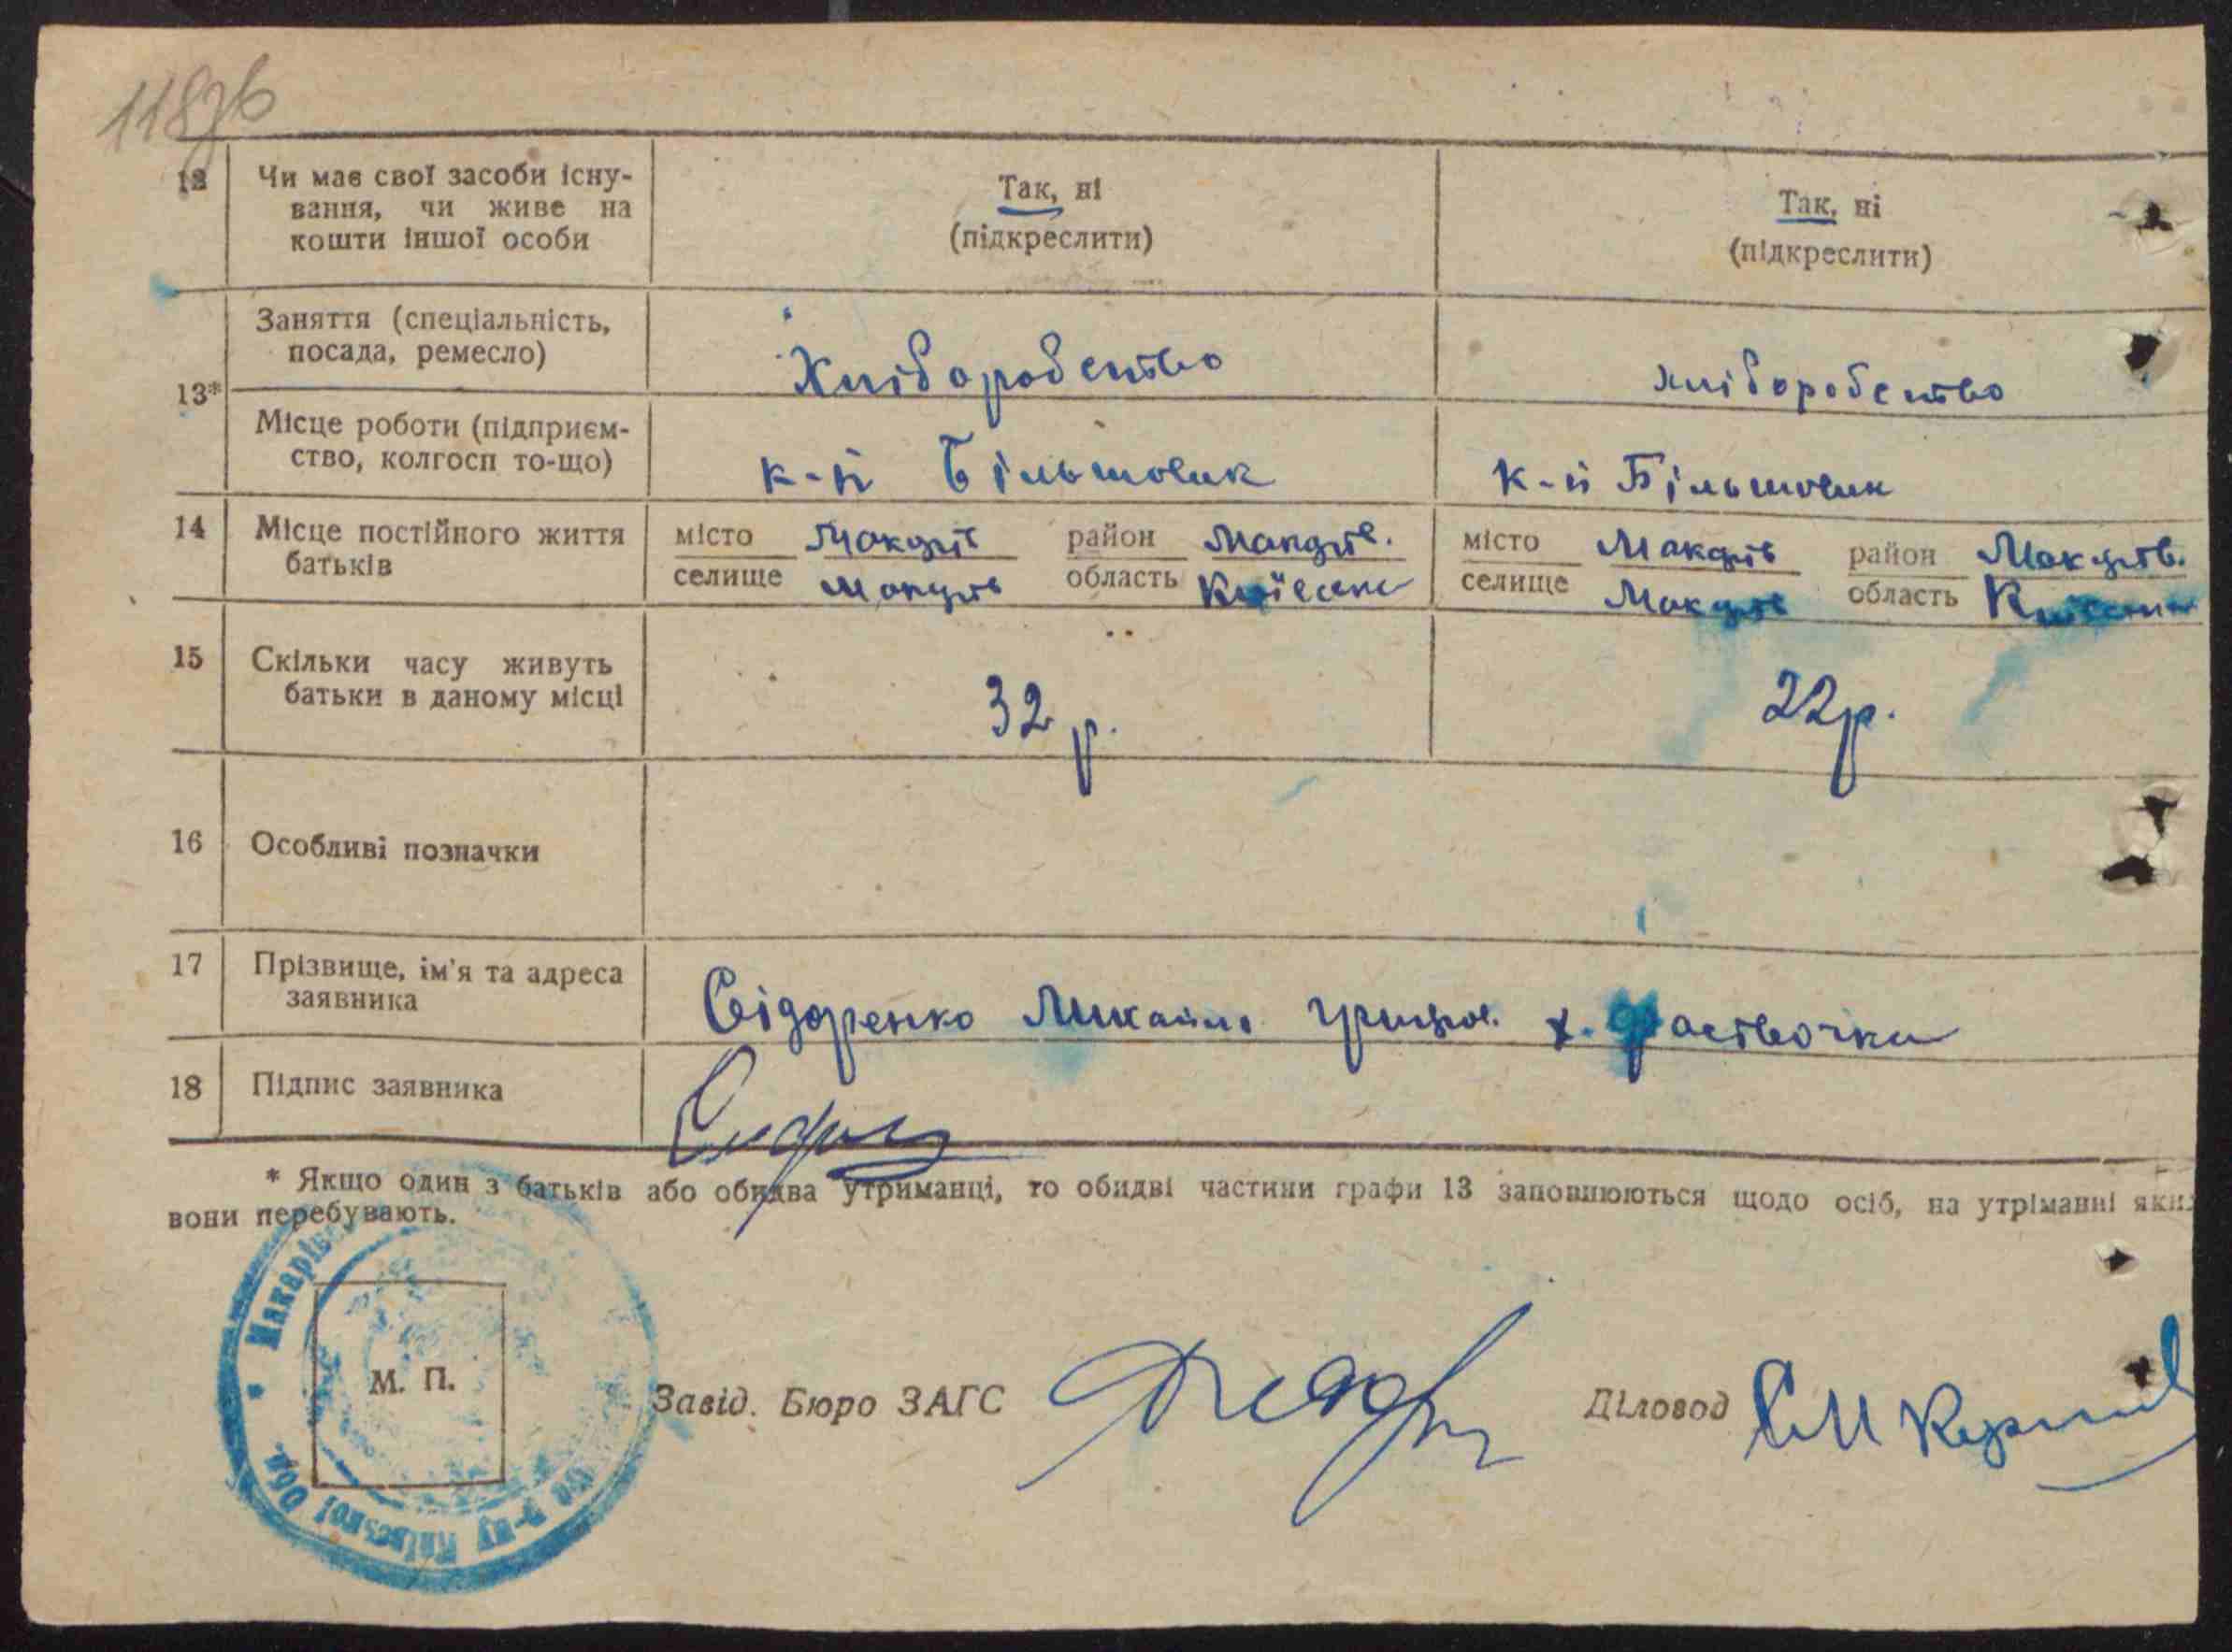 118зв
12 Чи має свої засоби існу-
вання, чи живе на
кошти іншої особи
Так, ні
(підкреслити)
Так, ні
(підкреслити)
13*
Заняття (спеціальність,
посада, ремесло)
Хліборобство
хліборобство
Місце роботи (підприєм-
ство, колгосп то-що)
к-п Більшовик
к-п Більшовик
14 Місце постійного життя
батьків
місто Макарів район Макарів.
селище Макарів область Київська
місто Макарів район Макарів.
селище Макарів область Київська
15 Скільки часу живуть
батьки в даному місці
32 р.
22 р.
16 Особливі позначки
17 Прізвище, ім'я та адреса
заявника
Сідоренко Михайло Григор. х.
18 Підпис заявника
* Якщо один з батьків або обидва утриманці, то обидві частини графи 13 заповнюються щодо осіб, на утріманні яких
вони перебувають.
Макарів
р-ну Київської Обл.
М. П.
Завід. Бюро ЗАГС
Діловод